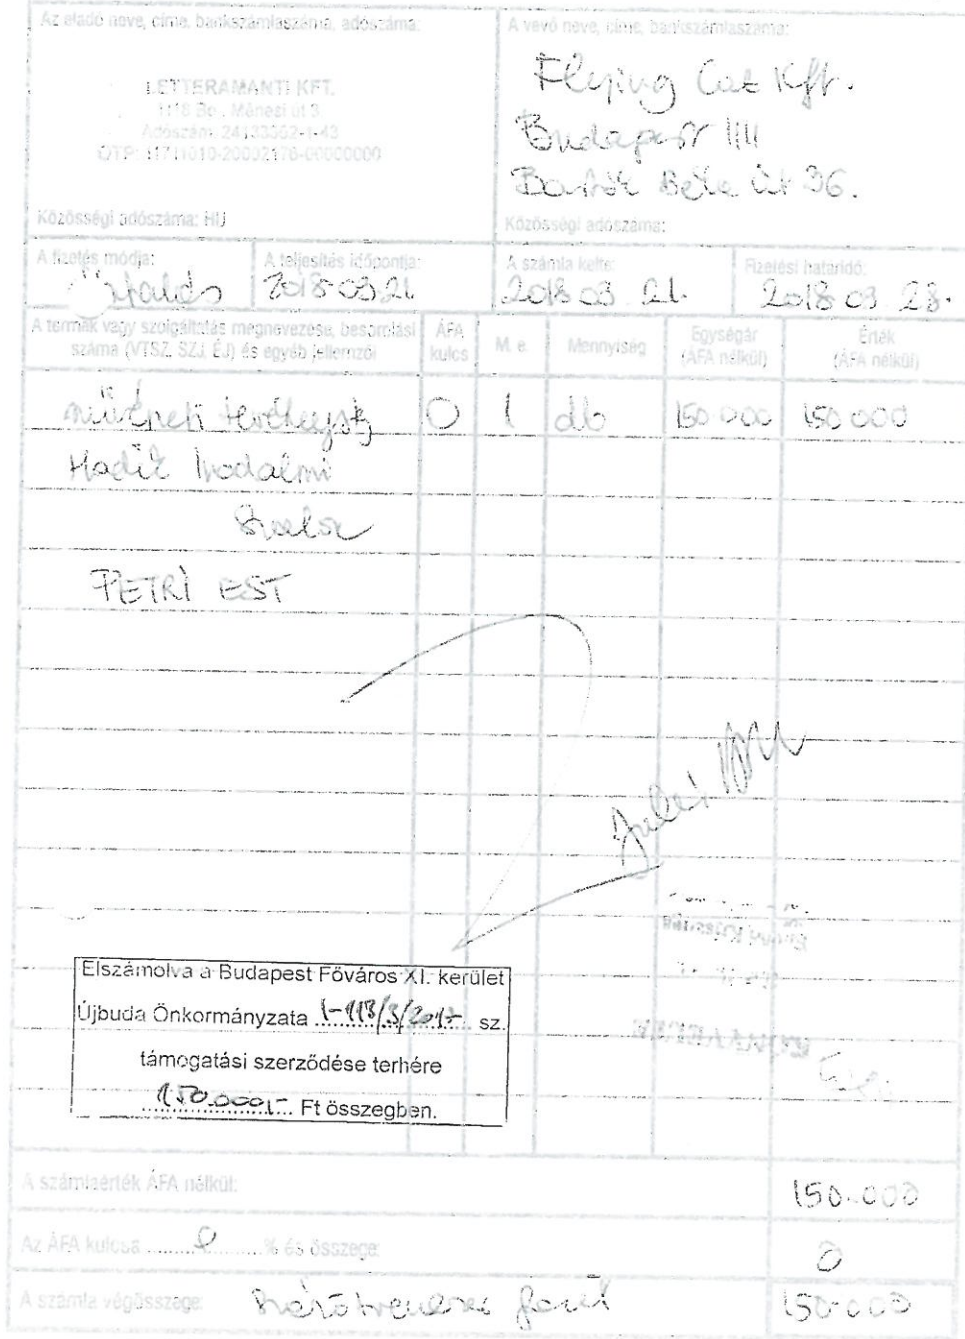 Az eladó neve, címe, bankszámlaszáma, adószáma:
LETTERAMANTI KFT.
1118 Bp., Ménesi út 3
Adószám: 24133362-1-43
OTP: 11711010-20002176-00000000
Közösségi adószáma: HU
A vevő neve, címe, bankszámlaszáma:
Flying Cat Kft.
Budapest 1111
Bartók Béla út 36.
Közösségi adószáma:
A fizetés módja:
Átutalás
A teljesítés időpontja:
2018 03 21.
A számla kelte:
2018 03 21.
Fizetési határidő:
2018 03 28.
A termék vagy szolgáltatás megnevezése, besorolási száma (VTSZ, SZJ, ÉJ) és egyéb jellemzői
ÁFA kulcs
M. e.
Mennyiség
Egységár (ÁFA nélkül)
Érték (ÁFA nélkül)
művészeti tevékenység 0 1 db 150 000 150 000
Hadik Irodalmi
Szalon
PETRI EST
Elszámolva a Budapest Főváros XI. kerület
Újbuda Önkormányzata I-113/3/2017 sz.
támogatási szerződése terhére
150.000,- Ft összegben.
A számlaérték ÁFA nélkül: 150.000
Az ÁFA kulcsa 0 % és összege: 0
A számla végösszege: Százötvenezer forint 150.000